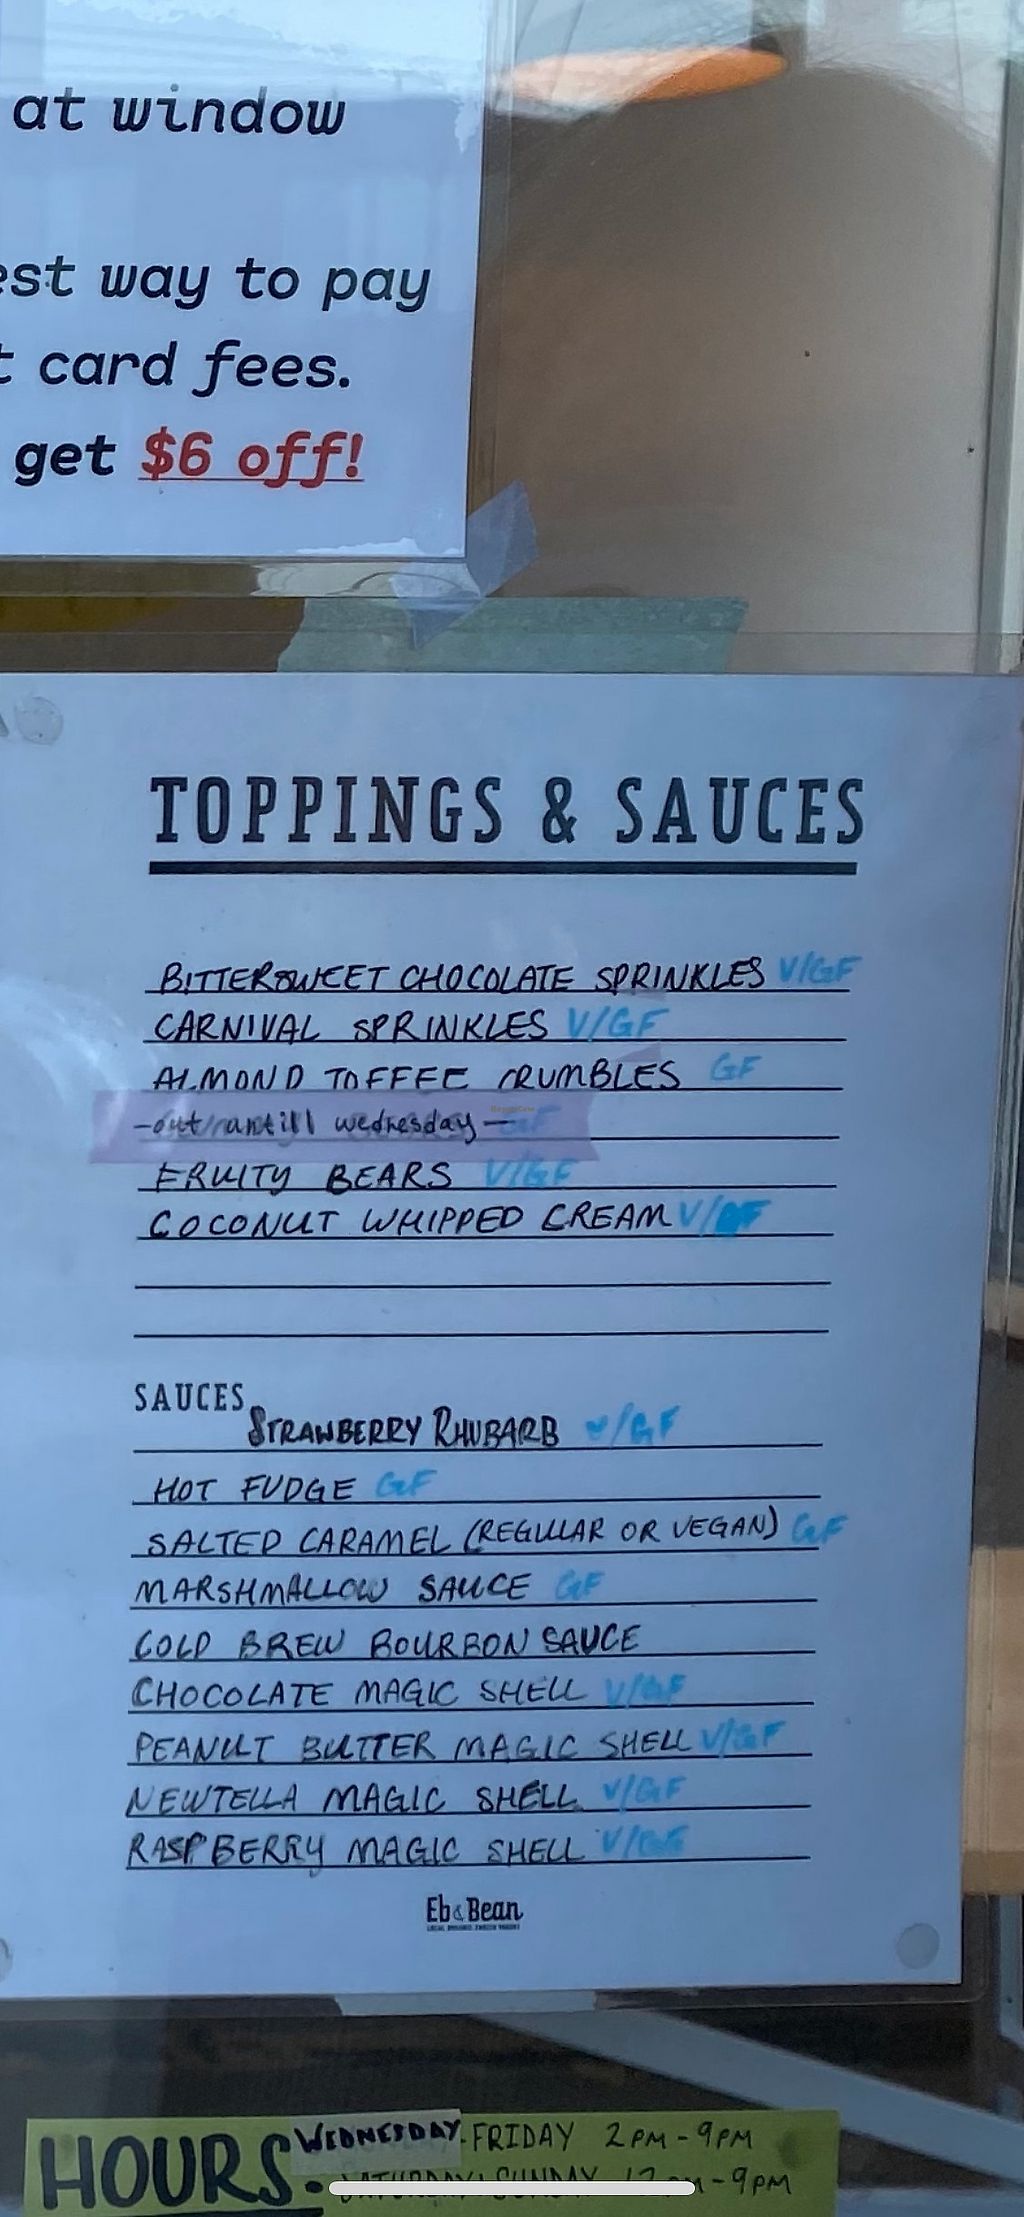 at window
est way to pay
t card fees.
get $6 off!
TOPPINGS & SAUCES
BITTERSWEET CHOCOLATE SPRINKLES V/GF
CARNIVAL SPRINKLES V/GF
ALMOND TOFFEE CRUMBLES GF
-out untill wednesday- GF
FRUITY BEARS V/GF
COCONUT WHIPPED CREAM V/GF
SAUCES
STRAWBERRY RHUBARB V/GF
HOT FUDGE GF
SALTED CARAMEL (REGULAR OR VEGAN) GF
MARSHMALLOW SAUCE GF
COLD BREW BOURBON SAUCE
CHOCOLATE MAGIC SHELL V/GF
PEANUT BUTTER MAGIC SHELL V/GF
NEWTELLA MAGIC SHELL V/GF
RASPBERRY MAGIC SHELL V/GF
Eb & Bean
HOURS: WEDNESDAY-FRIDAY 2PM-9PM
SATURDAY/SUNDAY 12PM-9PM